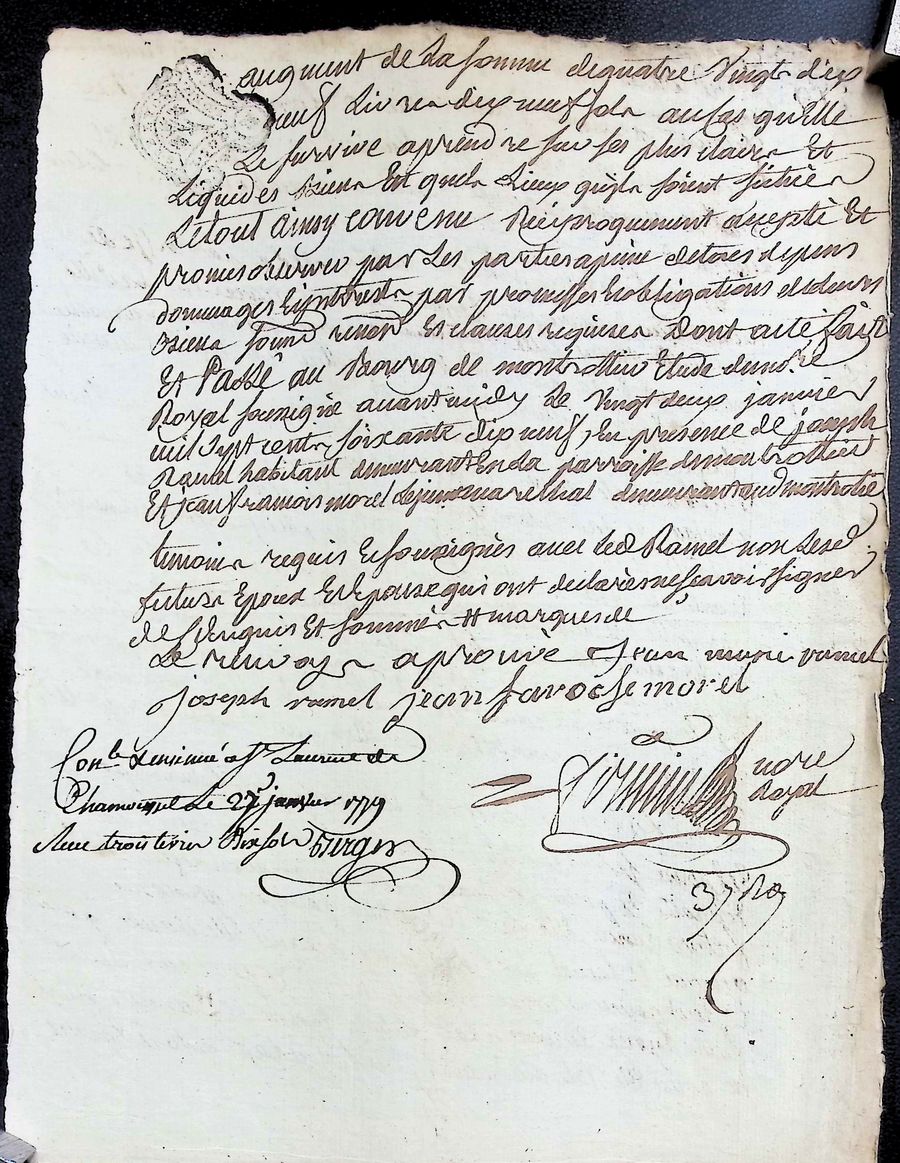 augment de La somme de quatre Vingt dix
neuf Livres dix neuf sols au Cas qu'elle
Le survive a prendre sur ses plus claires Et
Liquides Biens En quels Lieux qu'ils soient situés
Le tout ainsy convenu Reciproquement accepté Et
promis observer par Les parties a peine de tous depens
dommages Et intrests par promesses Et obligations de Leurs
Biens soumō renonō Et clauses requises Dont acte fait
Et Passé au Bourg de montrottier Etude du no.re
Royal soussigné avant midy Le Vingt deux janvier
mil sept cents soixante dix neuf, En presence de joseph
Ramel habitant demeurant En La parroisse de montrottier
Et jean francois morel Le jeune marechal demeurant aud montrottier
temoins requis Et soussignés avec led Ramel non Lesd.
futurs Epoux Et Epouse qui ont declarés ne scavoir signer
de ce Enquis Et sommés # marques de
Le renvoys aprouvé Jean marie ramel
joseph ramel jean faroise morel
Con.le & insinué a S.t Laurent de
Chamousset Le 27.e janvier 1779
Reçu trois livres Dix sols
no.re
Royal